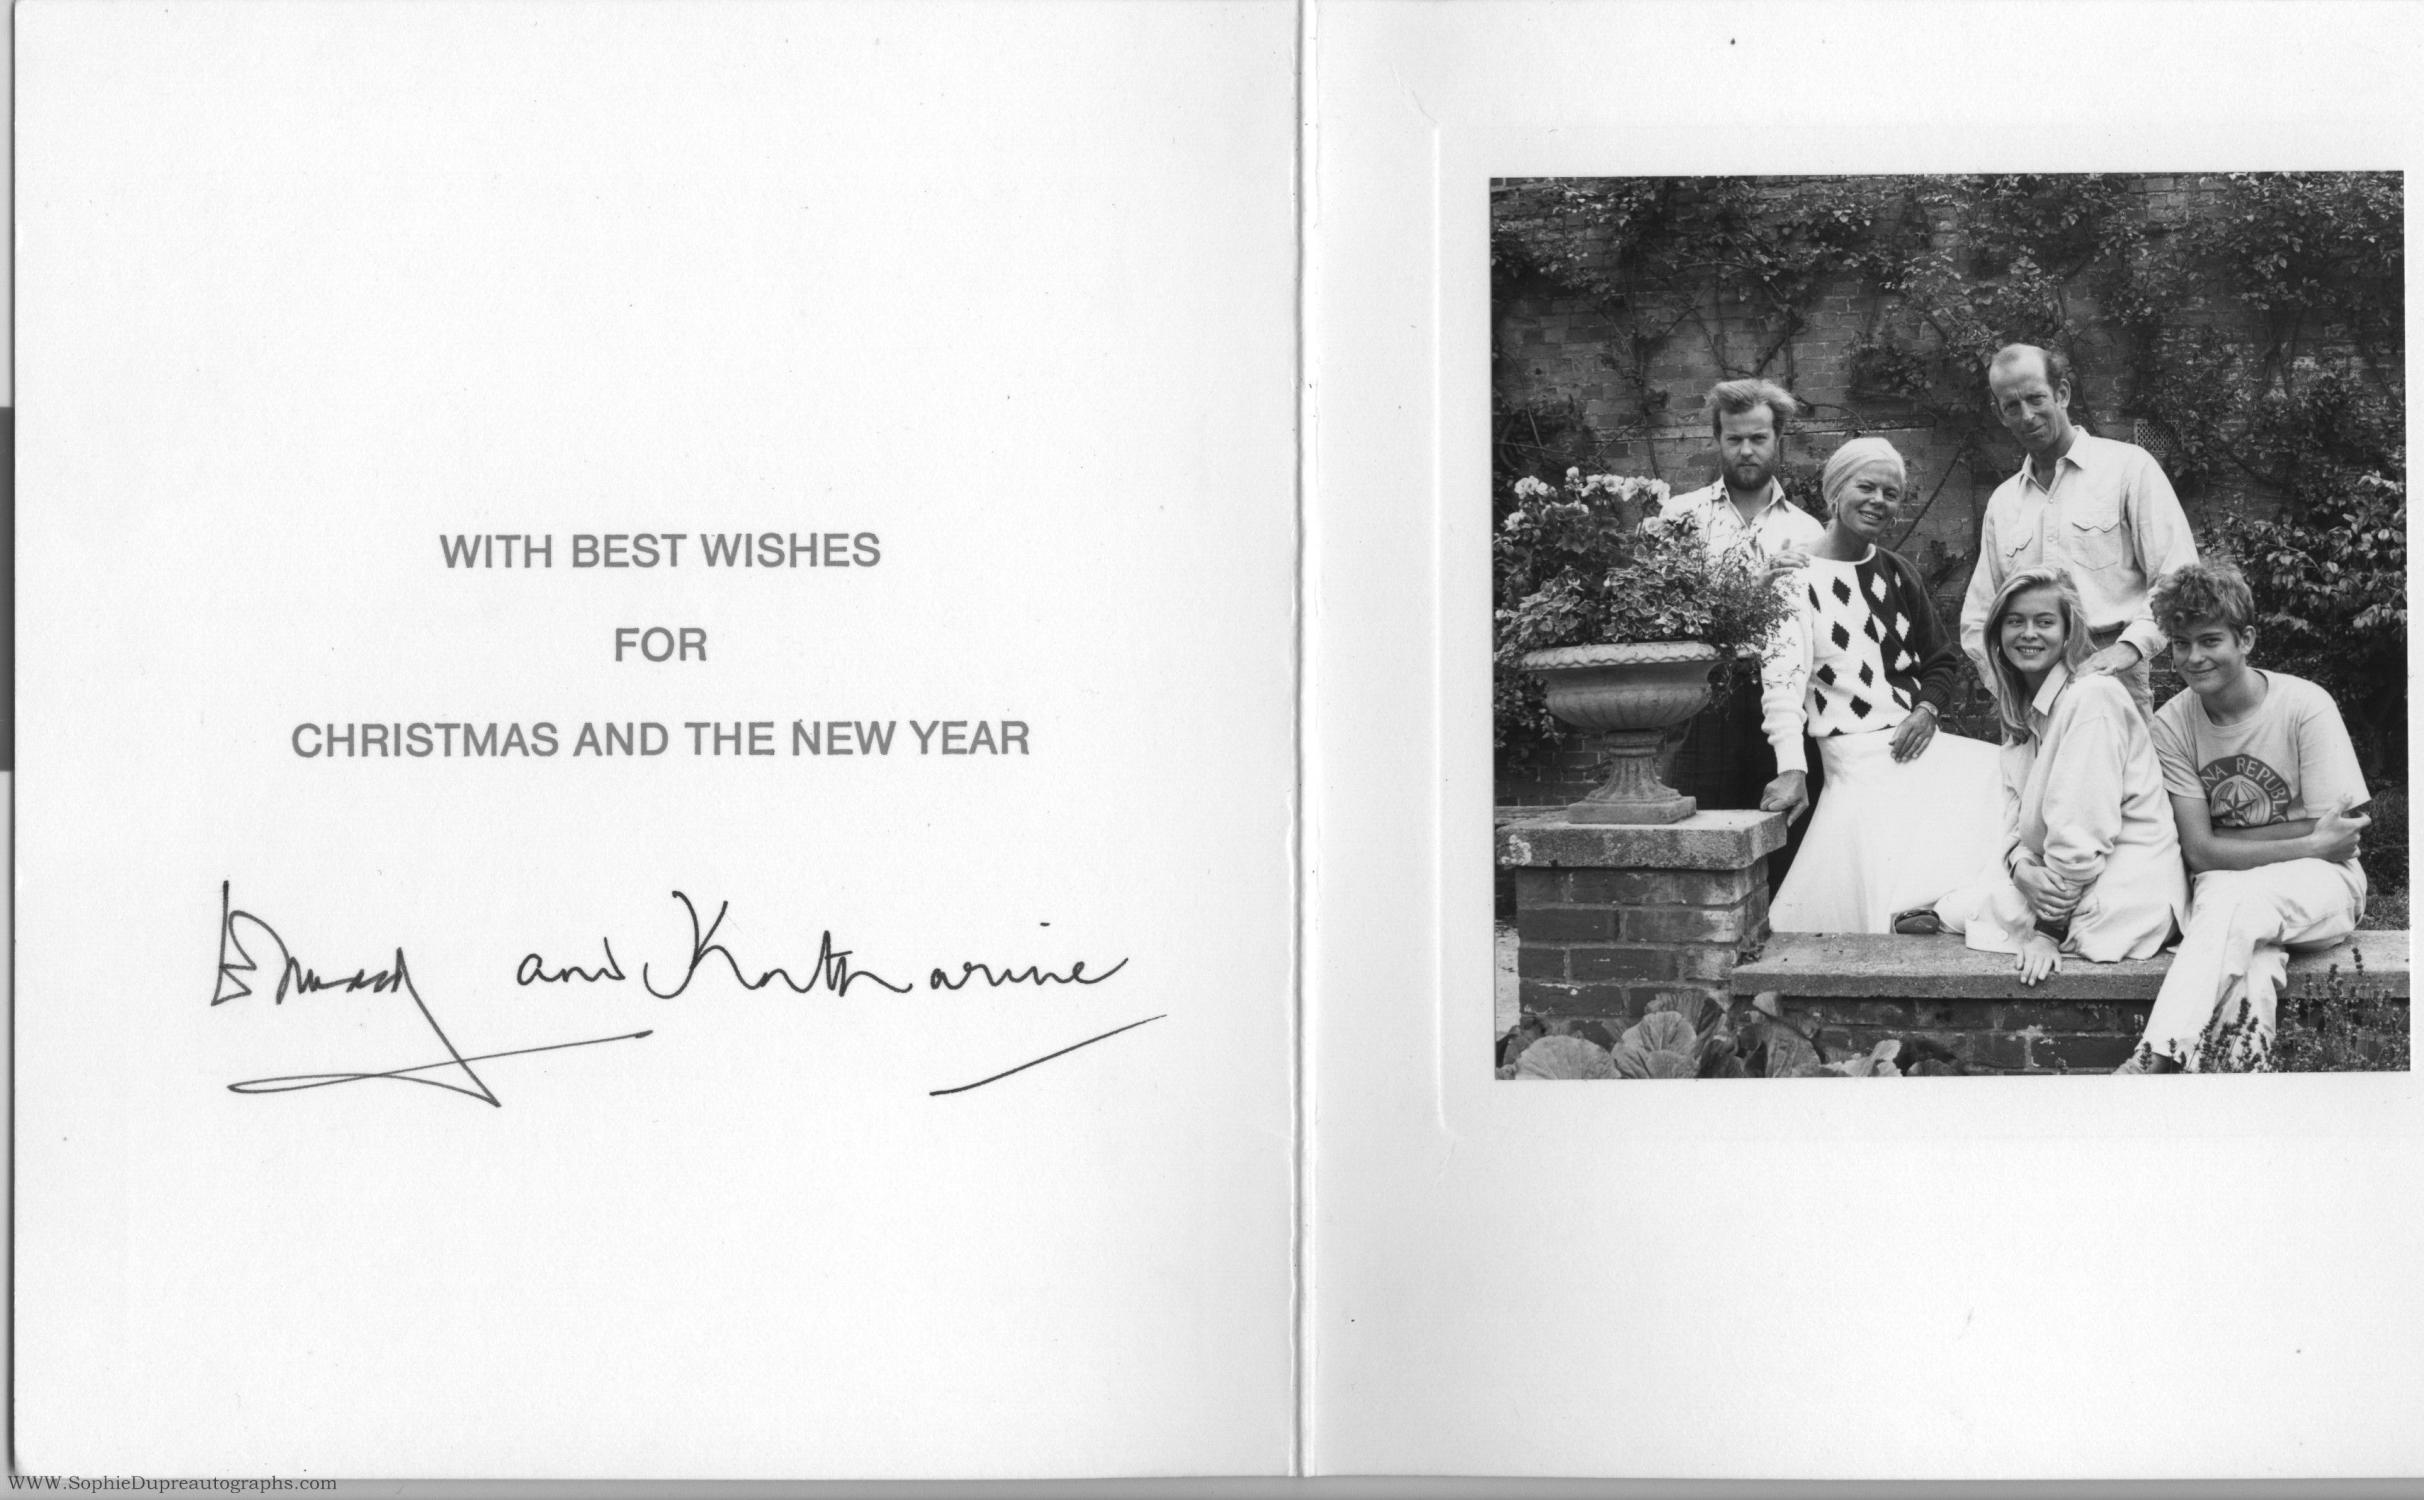 WITH BEST WISHES
FOR
CHRISTMAS AND THE NEW YEAR
Edward and Katharine
NA REPUBL
WWW.SophieDupreautographs.com